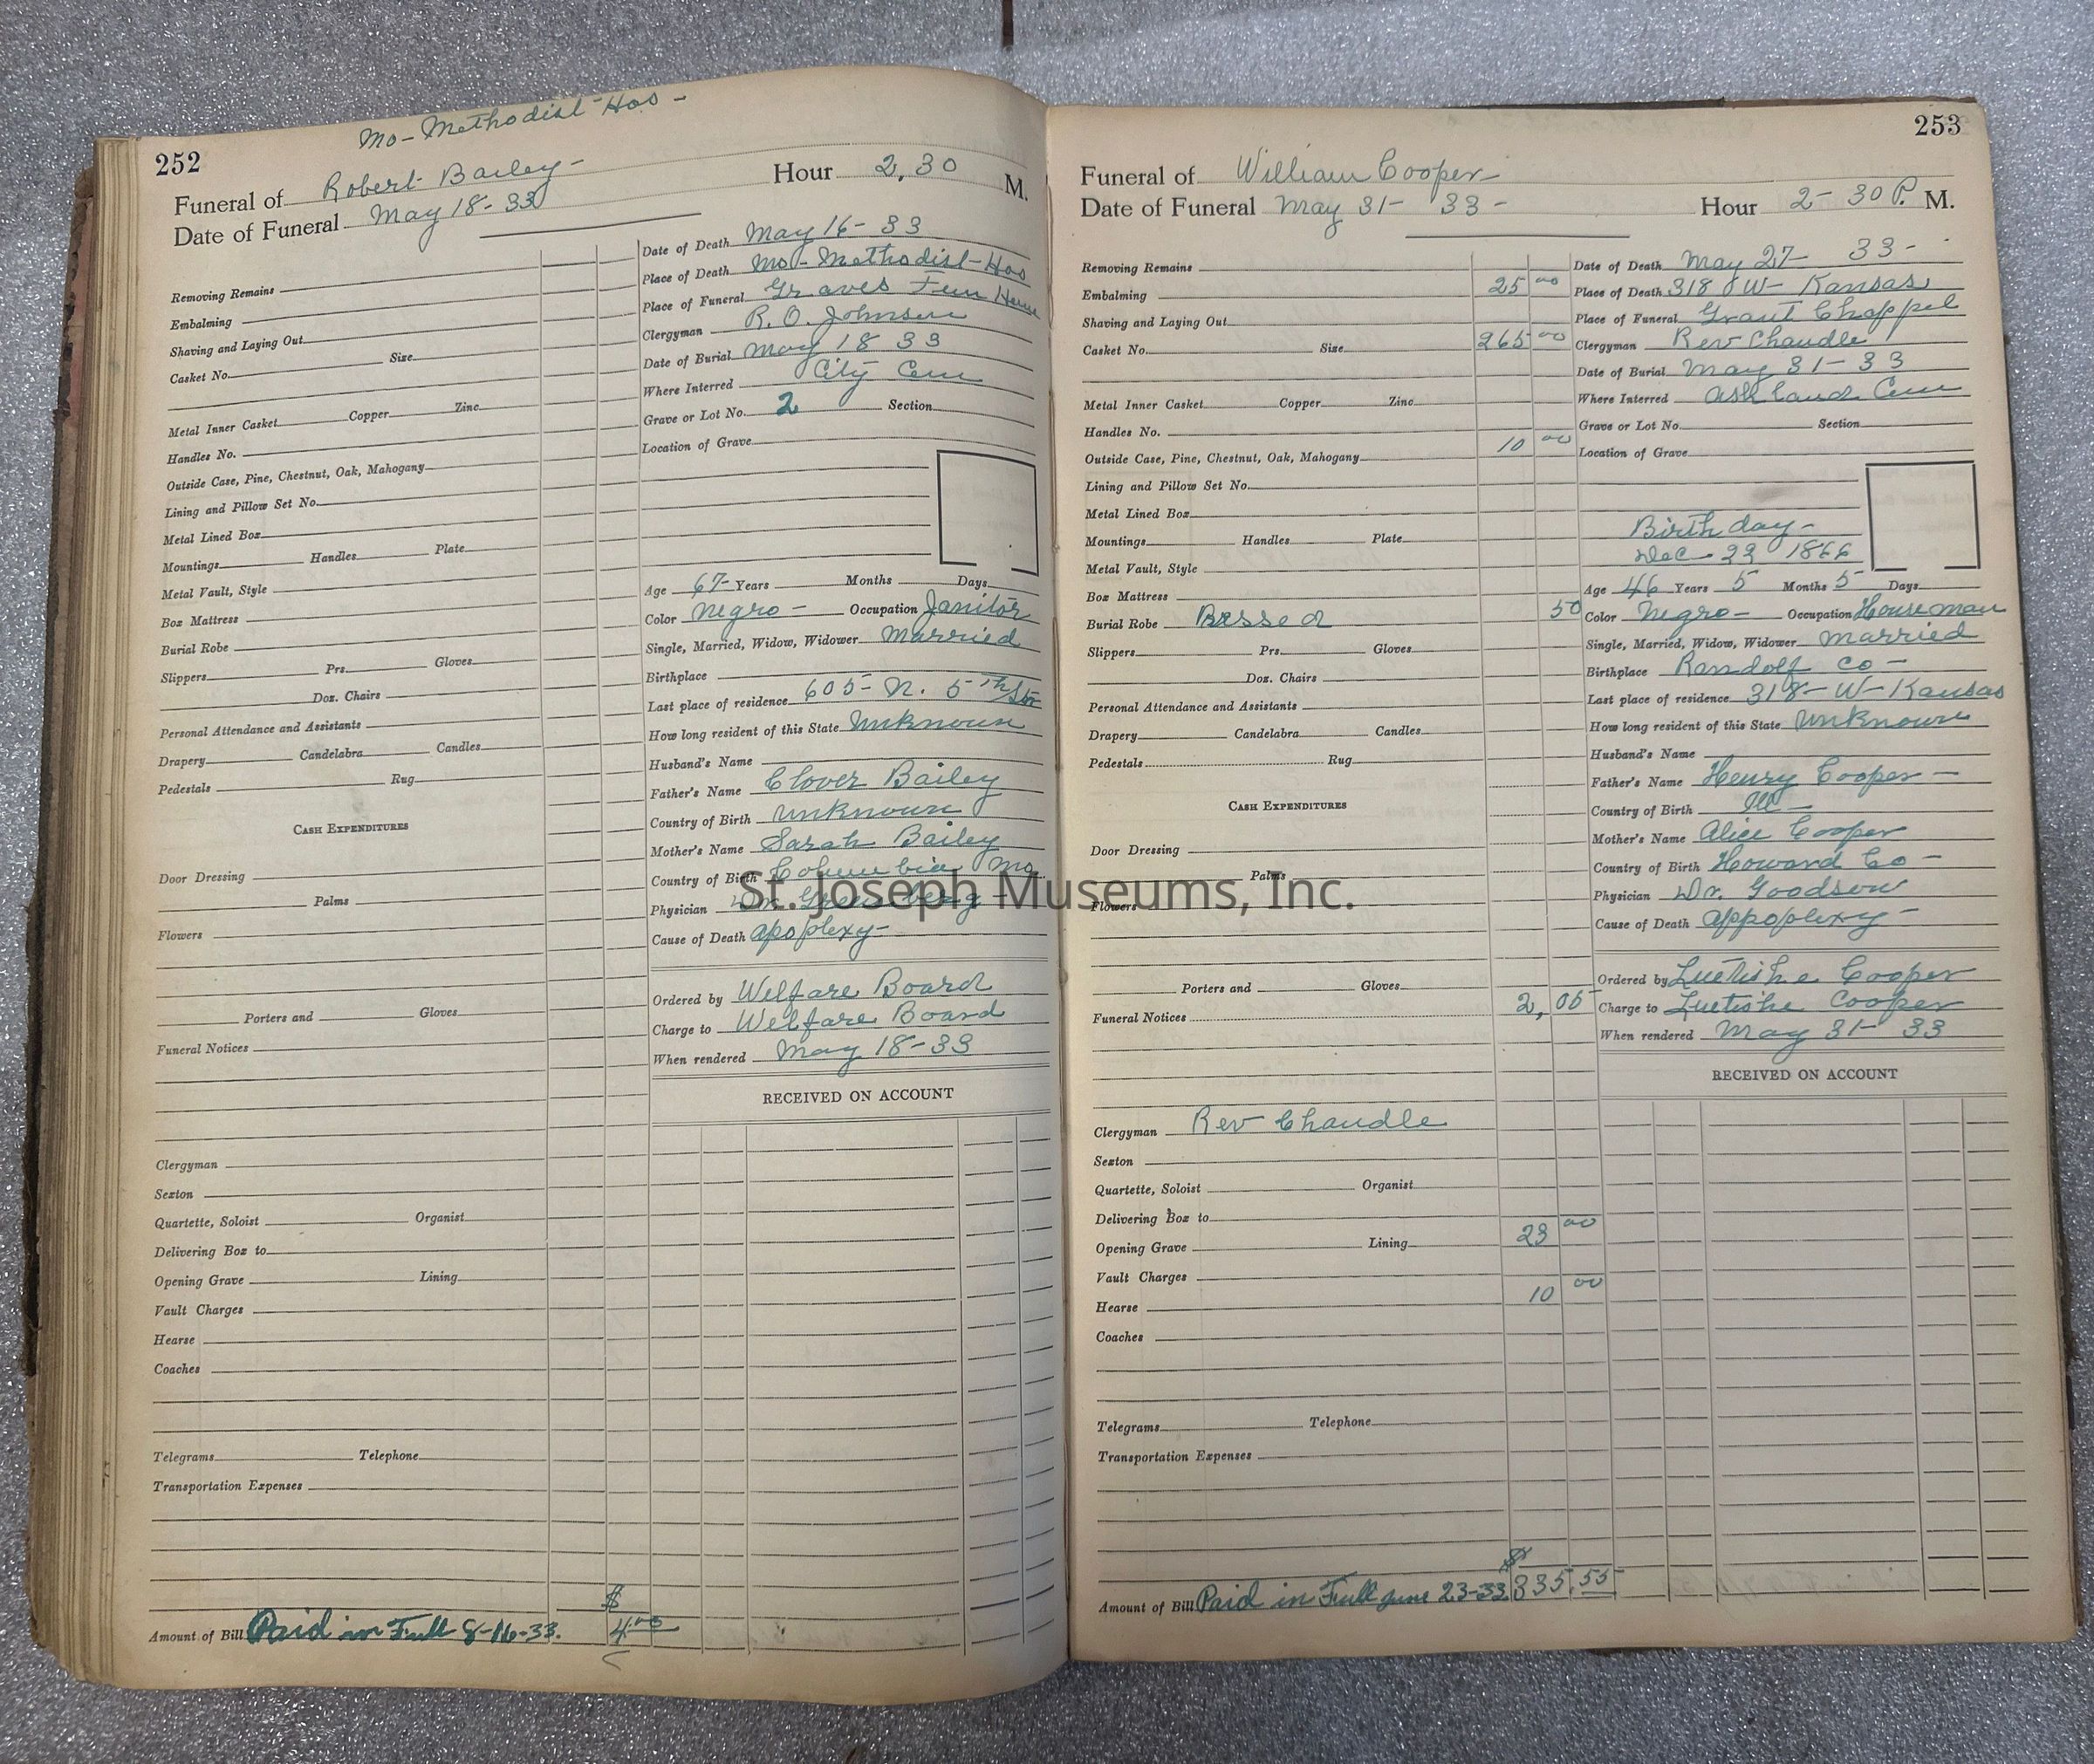 Mo- Methodist Hos-
252
Funeral of Robert Bailey- Hour 2,30 M.
Date of Funeral May 18-33
Removing Remains
Embalming
Shaving and Laying Out
Casket No. Size
Metal Inner Casket Copper Zinc
Handles No.
Outside Case, Pine, Chestnut, Oak, Mahogany
Lining and Pillow Set No.
Metal Lined Box
Mountings Handles Plate
Metal Vault, Style
Box Mattress
Burial Robe
Slippers Prs. Gloves
Doz. Chairs
Personal Attendance and Assistants
Drapery Candelabra Candles
Pedestals Rug
CASH EXPENDITURES
Door Dressing
Palms
Flowers
Porters and Gloves
Funeral Notices
Clergyman
Sexton
Quartette, Soloist Organist
Delivering Box to
Opening Grave Lining
Vault Charges
Hearse
Coaches
Telegrams Telephone
Transportation Expenses
$
Amount of Bill Paid in Full 8-16-33. 4.00
Date of Death May 16-33
Place of Death Mo- Methodist-Hos
Place of Funeral Graves Fun Home
Clergyman R. O. Johnson
Date of Burial May 18 33
Where Interred City Cem
Grave or Lot No. 2 Section
Location of Grave
Age 67- Years Months Days
Color Negro- Occupation Janitor
Single, Married, Widow, Widower Married
Birthplace
Last place of residence 605- N. 5th Str
How long resident of this State Unknown
Husband's Name
Father's Name Clover Bailey
Country of Birth Unknown
Mother's Name Sarah Bailey
Country of Birth Columbia Mo
Physician Dr
Cause of Death Apoplexy-
Ordered by Welfare Board
Charge to Welfare Board
When rendered May 18-33
RECEIVED ON ACCOUNT
St. Joseph Museums, Inc.
253
Funeral of William Cooper-
Date of Funeral May 31- 33- Hour 2-30 P. M.
Removing Remains
Embalming 25 00
Shaving and Laying Out
Casket No. Size 265 00
Metal Inner Casket Copper Zinc
Handles No.
Outside Case, Pine, Chestnut, Oak, Mahogany 10 00
Lining and Pillow Set No.
Metal Lined Box
Mountings Handles Plate
Metal Vault, Style
Box Mattress
Burial Robe 50
Slippers Prs. Gloves
Doz. Chairs
Personal Attendance and Assistants
Drapery Candelabra Candles
Pedestals Rug
CASH EXPENDITURES
Door Dressing
Palms
Flowers
Porters and Gloves
Funeral Notices 2,05
Clergyman Rev Chandle
Sexton
Quartette, Soloist Organist
Delivering Box to
Opening Grave Lining 23 00
Vault Charges
Hearse 10 00
Coaches
Telegrams Telephone
Transportation Expenses
$
Amount of Bill Paid in Full June 23-33 335.55
Date of Death May 27- 33-
Place of Death 318 W- Kansas
Place of Funeral Grant Chappel
Clergyman Rev Chandle
Date of Burial May 31-33
Where Interred Ashland Cem
Grave or Lot No. Section
Location of Grave
Birthday-
Dec- 23 1866
Age 46 Years 5 Months 5 Days
Color Negro- Occupation Houseman
Single, Married, Widow, Widower Married
Birthplace Randolf Co-
Last place of residence 318- W- Kansas
How long resident of this State Unknown
Husband's Name
Father's Name Henry Cooper-
Country of Birth Ill-
Mother's Name Alice Cooper
Country of Birth Howard Co-
Physician Dr. Goodson
Cause of Death Appoplexy-
Ordered by Luetishe Cooper
Charge to Luetishe Cooper
When rendered May 31- 33
RECEIVED ON ACCOUNT